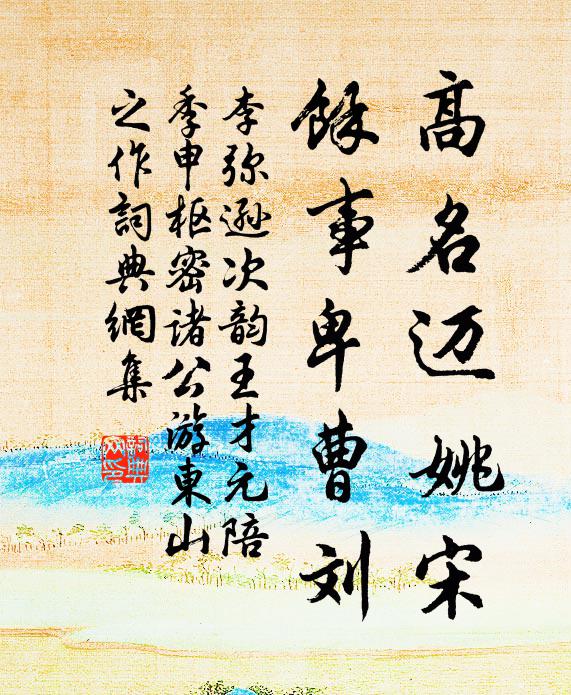 高名迈姚宋
餘事卑曹刘
李弥逊次韵王才元陪
季申枢密诸公游東山
之作詞典網集